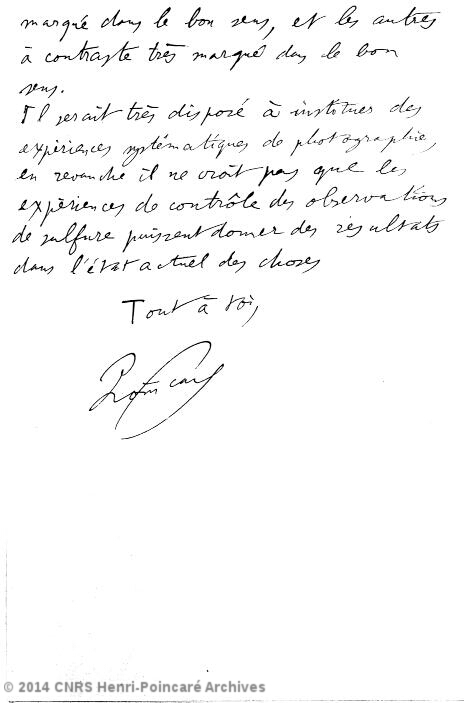 marqué dans le bon sens, et les autres
à contraste très marqué dans le bon
sens.
Il serait très disposé à instituer des
expériences systématiques de photographie,
en revanche il ne croit pas que les
expériences de contrôle des observations
de sulfure puissent donner des résultats
dans l'état actuel des choses
Tout à toi,
Poincaré
© 2014 CNRS Henri-Poincaré Archives